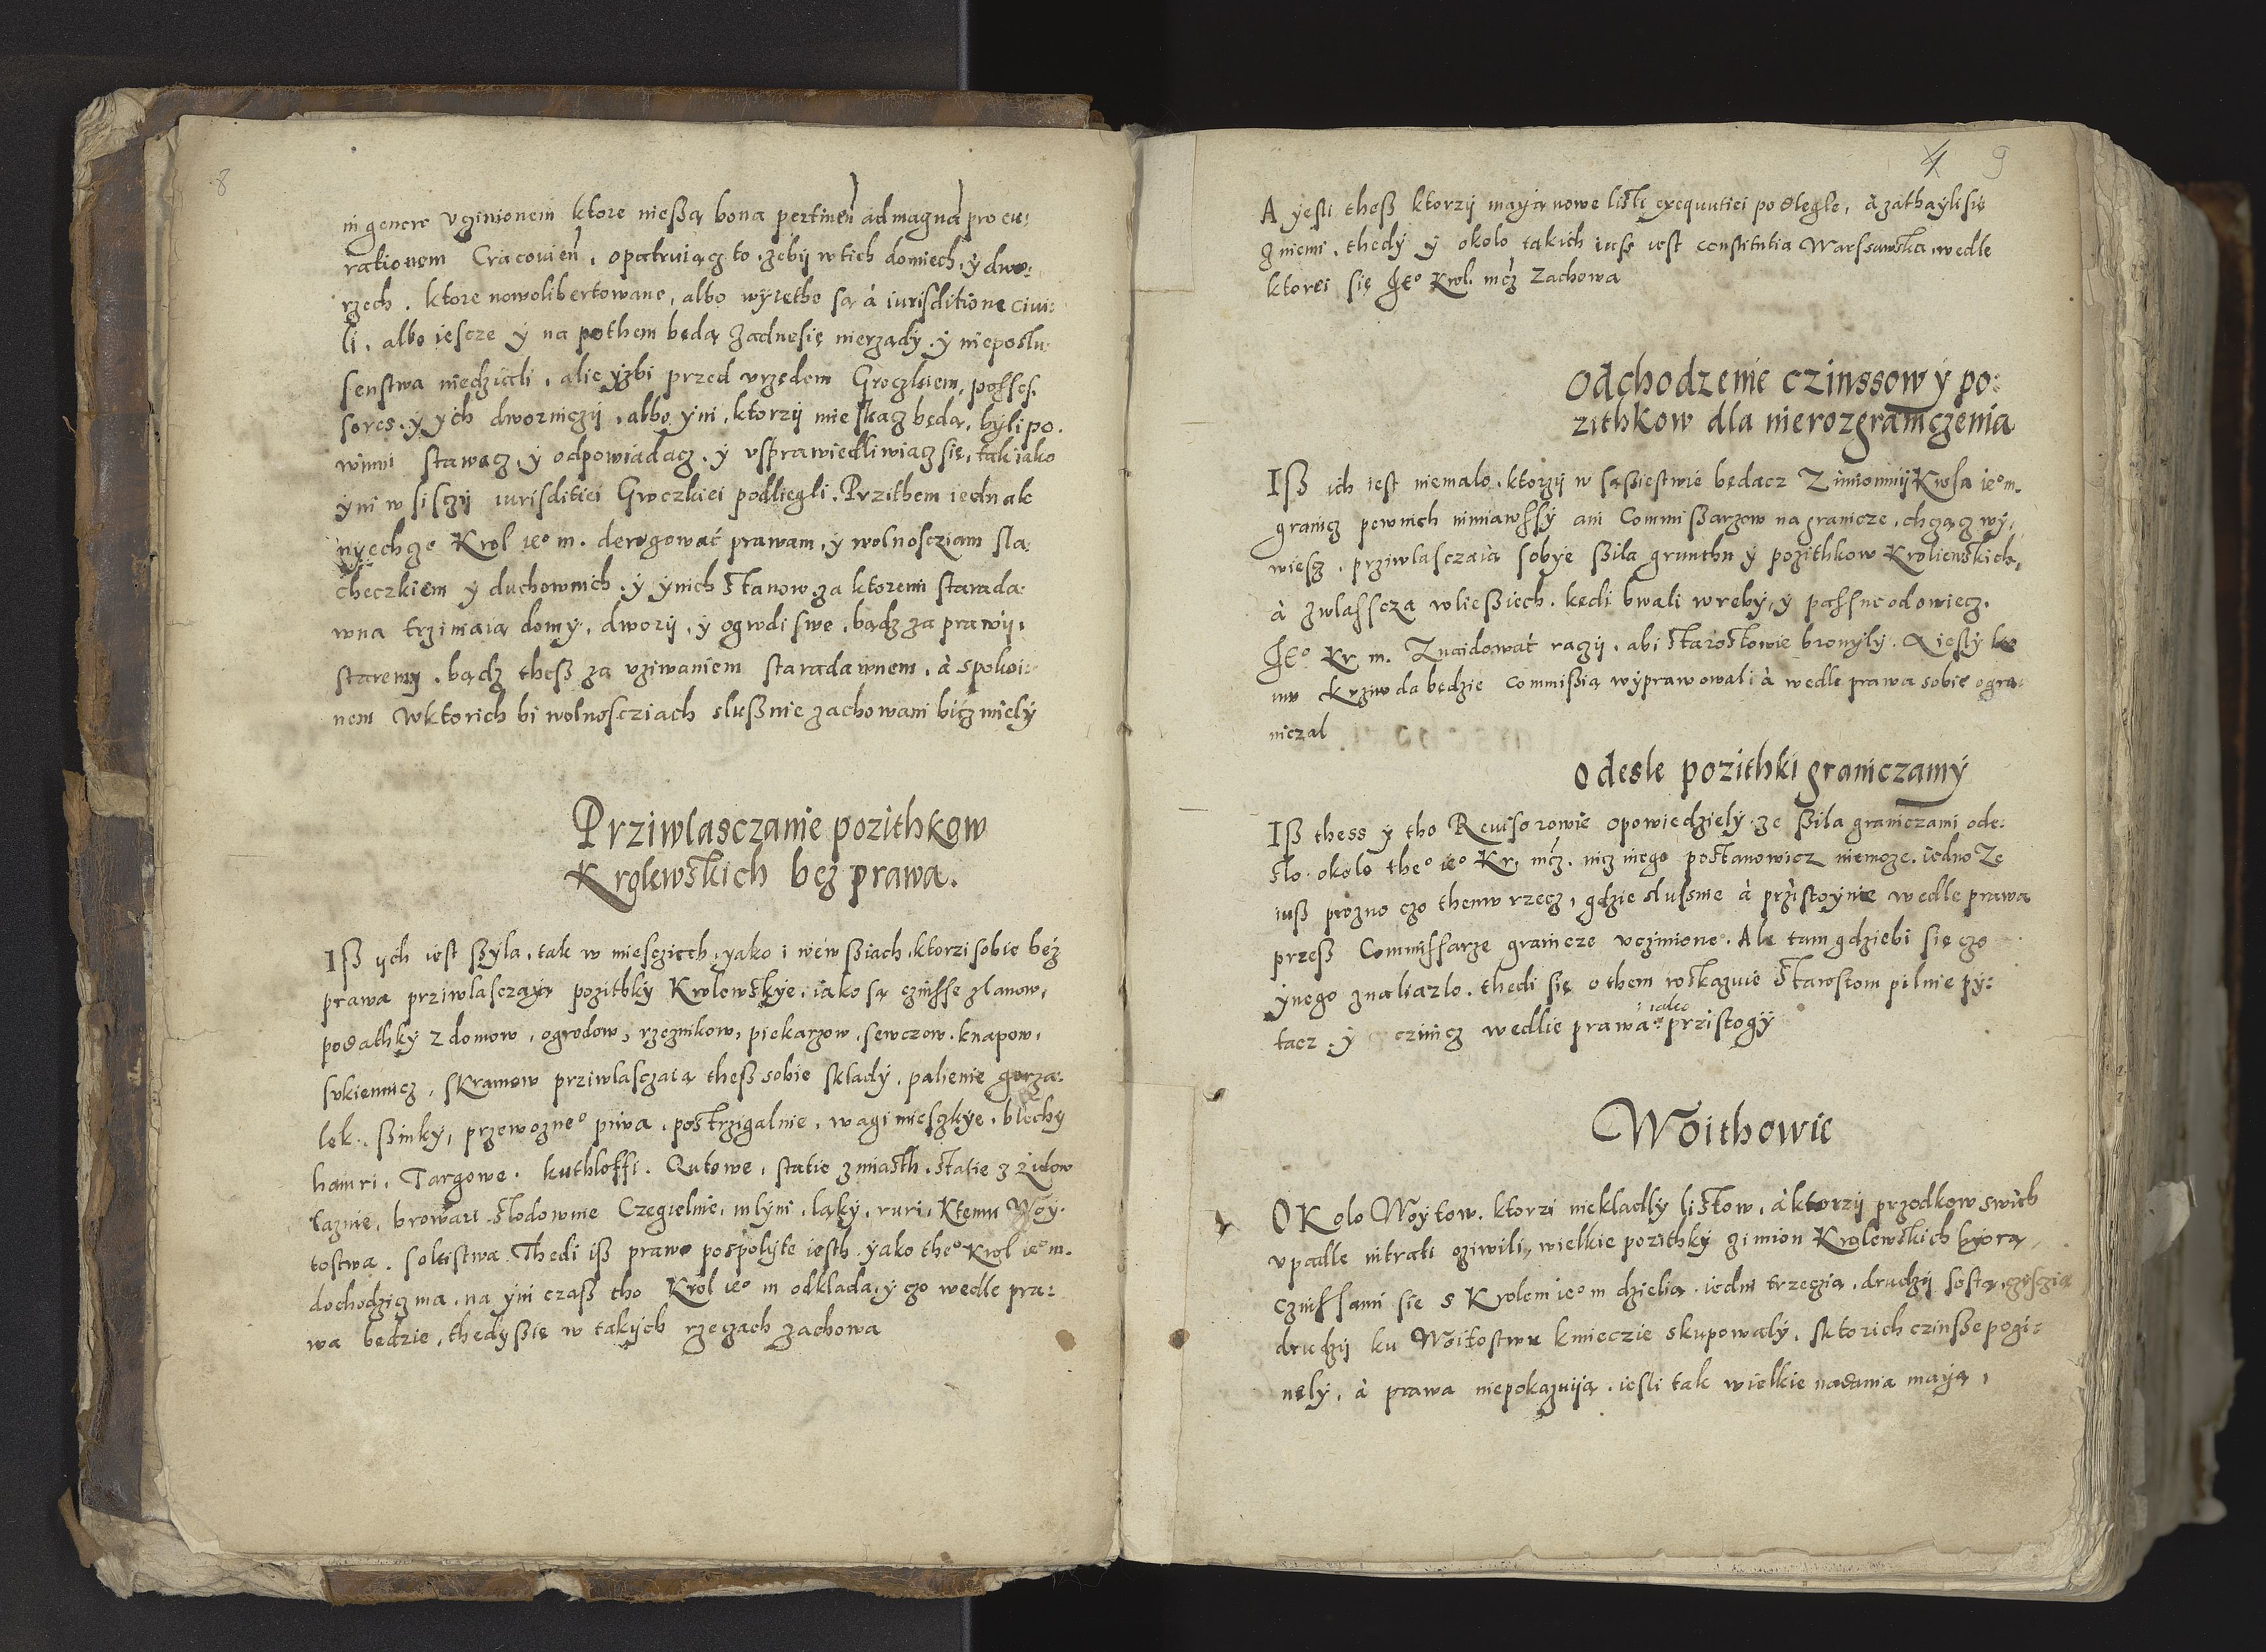 8
in genere uczinionem ktore nießą bona pertineñ ad magnã procu:
rationem Cracouieñ, opatruiącz to, zebij w tich domiech, ÿ dwo:
rzech. ktore nowolibertowane, albo wÿiethe są à iurisditione ciui:
li. albo iescze ÿ na pothem będą zadnesię nierządÿ. ÿ nieposlu:
senstwa niedziali, alie ÿzbi przed urzędem Groczkiem, posses.
sores. ÿ ÿch dworniczÿ, albo ÿni, ktorzij mieskacz będą, bÿli po.
winni stawacz, ÿ odpowiadacz, ÿ usprawiedliwiacz się, tak iako
ÿni wsisczij iurisditiei Groczkiei podliegli. Przithem iednak
nÿechze Krol ieº m. derogować prawam, ÿ wolnoscziam sla:
checzkiem ÿ duchownich. ÿ ÿnich stanow za ktoremi starada:
wna trzimaią domÿ, dworij, ÿ ogrodi swe, bądz za prawij,
staremij, bądz theß za uziwaniem staradawnem, à spokoi:
nem w ktorich bi wolnoscziach slußnie zachowani bicz mielÿ
Prziwlasczanie pozithkow
Krolewskich bez prawa.
Iß ÿch iest ßÿla, tak w miesciech, yako i we wßiach, ktorzi sobie bez
prawa prziwlasczaÿą pozithkÿ Krolewskÿe, iako są czinsse z lanow,
podathkÿ z domow, ogrodow, rzeznikow, piekarzow, sewczow. knapow,
sukiennicz, skramow prziwlasczaią theß sobie składÿ, palienie gorza:
lek. ßinkÿ, przewozneº piwa, postrzigalnie, wagi miesczkÿe, blechÿ
hamri, Targowe. kuthloffi. Qutowe, statie z miasth. statie z Zidow
łaznie, browari słodownie Czegielnie, mlÿni, ląkÿ, ruri, Ktemu Woÿ:
tostwa. soltistwa. Thedi iß prawo pospolÿte iesth. ÿako theº Krol ieº m.
dochodzicz ma, na ÿni czaß tho Krol ieº m odklada, ÿ czo wedle pra:
wa bedzie, thedÿ ßie w takÿch rzeczach zachowa
4 9
A ÿesli theß ktorzij maÿą nowe listi exequutiei podległe, à zathaÿli się
z niemi, thedÿ ÿ okolo takich iusz iest constitutia Warssawska, wedle
ktorei się Jeº Krol. mcz zachowa
Odchodzenie czinssow ÿ po:
zithkow dla nierozgraniczenia
Iß ich iest niemalo, ktorzij w sąßiestwie będacz z imionmij Krola ieº m.
granicz pewnich nimiawssÿ ani Commißarzow na granicze, chcącz wÿ:
wiesz, prziwlasczaią sobÿe ßila grunthu ÿ pozithkow Kroliewskich,
à zwlasscza w ließiech. kędi bwali wrebÿ, ÿ passne odowiecz.
Jeº Kr. m. Znaidować raczij, abi starostowie bronÿlÿ. A ieslÿ ko
mu krziwda będzie Commißią wÿprawowali à wedle prawa sobie ogra:
niczal
Odesle pozithki graniczamÿ
Iß thess ÿ tho Reuisorowie opowiedzielÿ. ze ßila graniczami ode:
slo. okolo theº ieº Kr. mcz. nicz inego postanowicz niemoze. iedno Ze
iuß prozno czo themu rzecz, gdzie slusnie à prziistoÿnie wedle prawa
przeß Commissarze granicze uczinione. Ale tam gdziebi się czo
ÿnego znaliazlo. thedi się o them roskazuie starostom pilnie pÿ:
tacz. ÿ czinicz wedlie prawa i iako przistogÿ
Woithowie
OKolo Woÿtow. ktorzi niekladlÿ listow, à ktorzij przodkow swich
upadle intrati oziwili, wielkie pozithkÿ z imion Krolewskich biorą,
czinssami sie s Krolem ieº m dzielią. iedni trzeczią, drudzij sostą, czesczią
drudzij ku Woitostwu kmieczie skupowalÿ, s ktorich czinsße pogi:
nęlÿ, à prawa niepokazuiją. iesli tak wielkie nadania maÿą,